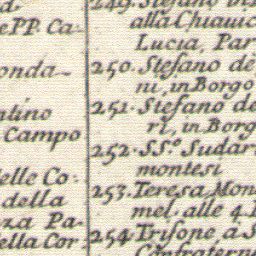 e PP. Ca-
onda-
ntino
Campo
elle Co-
della
za Pa-
ella Cor-
249. Stefano
alla Chiavic
Lucia, Par
250. Stefano de
ni, in Borgo
251. Stefano de
ri, in Borg
252. SS.º Sudar
montesi
253. Teresa, Mon
mel. alle 4. F
254. Trifone a S
Confratern